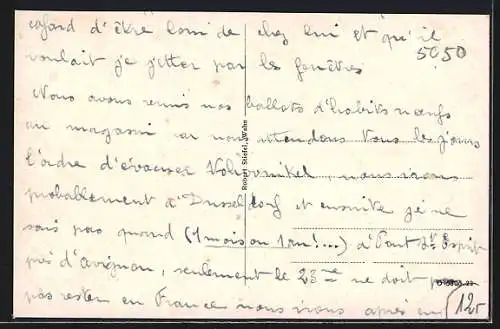 cafard d'être loin de chez lui et qu'il
voulait je jetter par les fenêtres
Nous avons remis nos ballots d'habits neufs
au magasin car nous attendons tous les jours
l'ordre d'évacuer Vohwinkel, nous irons
probablement à Dusseldorf et ensuite je ne
sais pas quand (1 mois ou 1 an!...) à Pont St Esprit
près d'Avignon, seulement le 23me ne doit
pas rester en France nous irons après en
5050
Robert Stiefel, Wahn
12